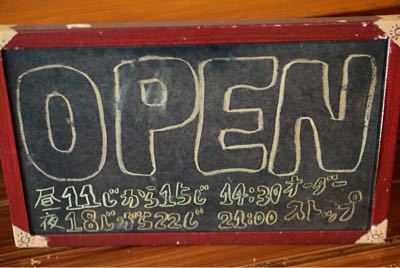 OPEN
昼11じから15じ 14:30オーダー
夜18じから22じ 21:00ストップ